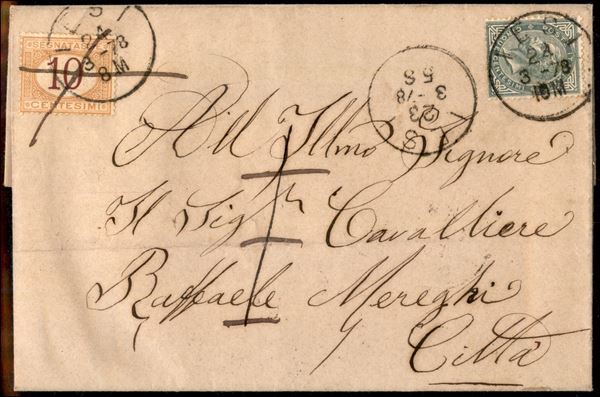 SEGNATASSE
10
CENTESIMI
IESI
24
3-78
8 M
IESI
23
3-78
5 S
IESI
24
3-78
10 M
All Illmo Signore
Il Sigr Cavalliere
Raffaele Mereghi
Città